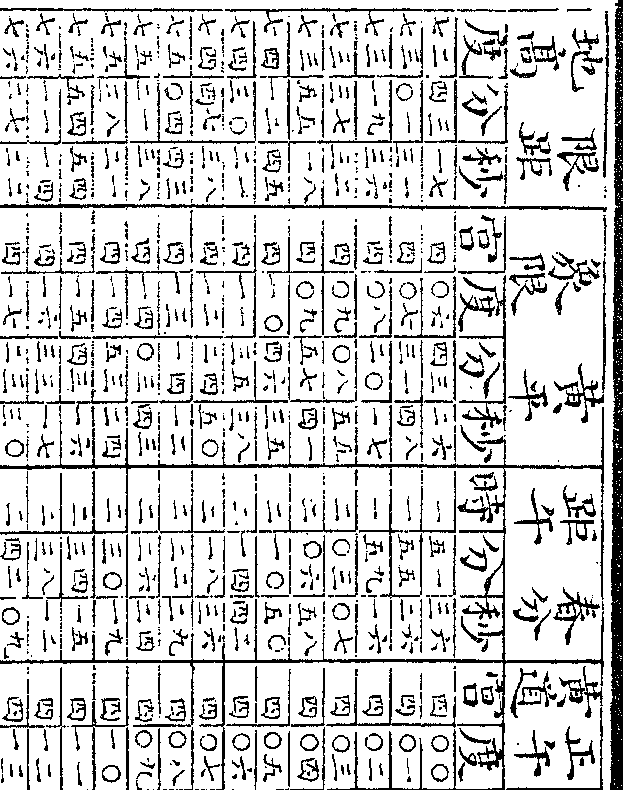 地高 限距 度 分 秒
象限 黃平 宮 度 分 秒
距午 春分 時 分 秒
黃道 正午 宮 度
七二 四三 一七 四 〇六 四三 二六 一 五一 三六 四 〇〇
七三 〇一 三一 四 〇七 三一 四八 一 五五 二六 四 〇一
七三 一九 三六 四 〇八 二〇 一七 一 五九 一六 四 〇二
七三 三七 三二 四 〇九 〇八 五五 二 〇三 〇七 四 〇三
七三 五五 一八 四 〇九 五七 四一 二 〇六 五八 四 〇四
七四 一二 四五 四 一〇 四六 三五 二 一〇 五〇 四 〇五
七四 三〇 二一 四 一一 三五 三八 二 一四 四二 四 〇六
七四 四七 三八 四 一二 二四 五〇 二 一八 三六 四 〇七
七五 〇四 四三 四 一三 一四 一二 二 二二 二九 四 〇八
七五 二一 三八 四 一四 〇三 四三 二 二六 二四 四 〇九
七五 三八 二一 四 一四 五三 二四 二 三〇 一九 四 一〇
七五 五四 五四 四 一五 四三 一六 二 三四 一五 四 一一
七六 一一 一四 四 一六 三三 一七 二 三八 一二 四 一二
七六 二七 二二 四 一七 二三 三〇 二 四二 〇九 四 一三